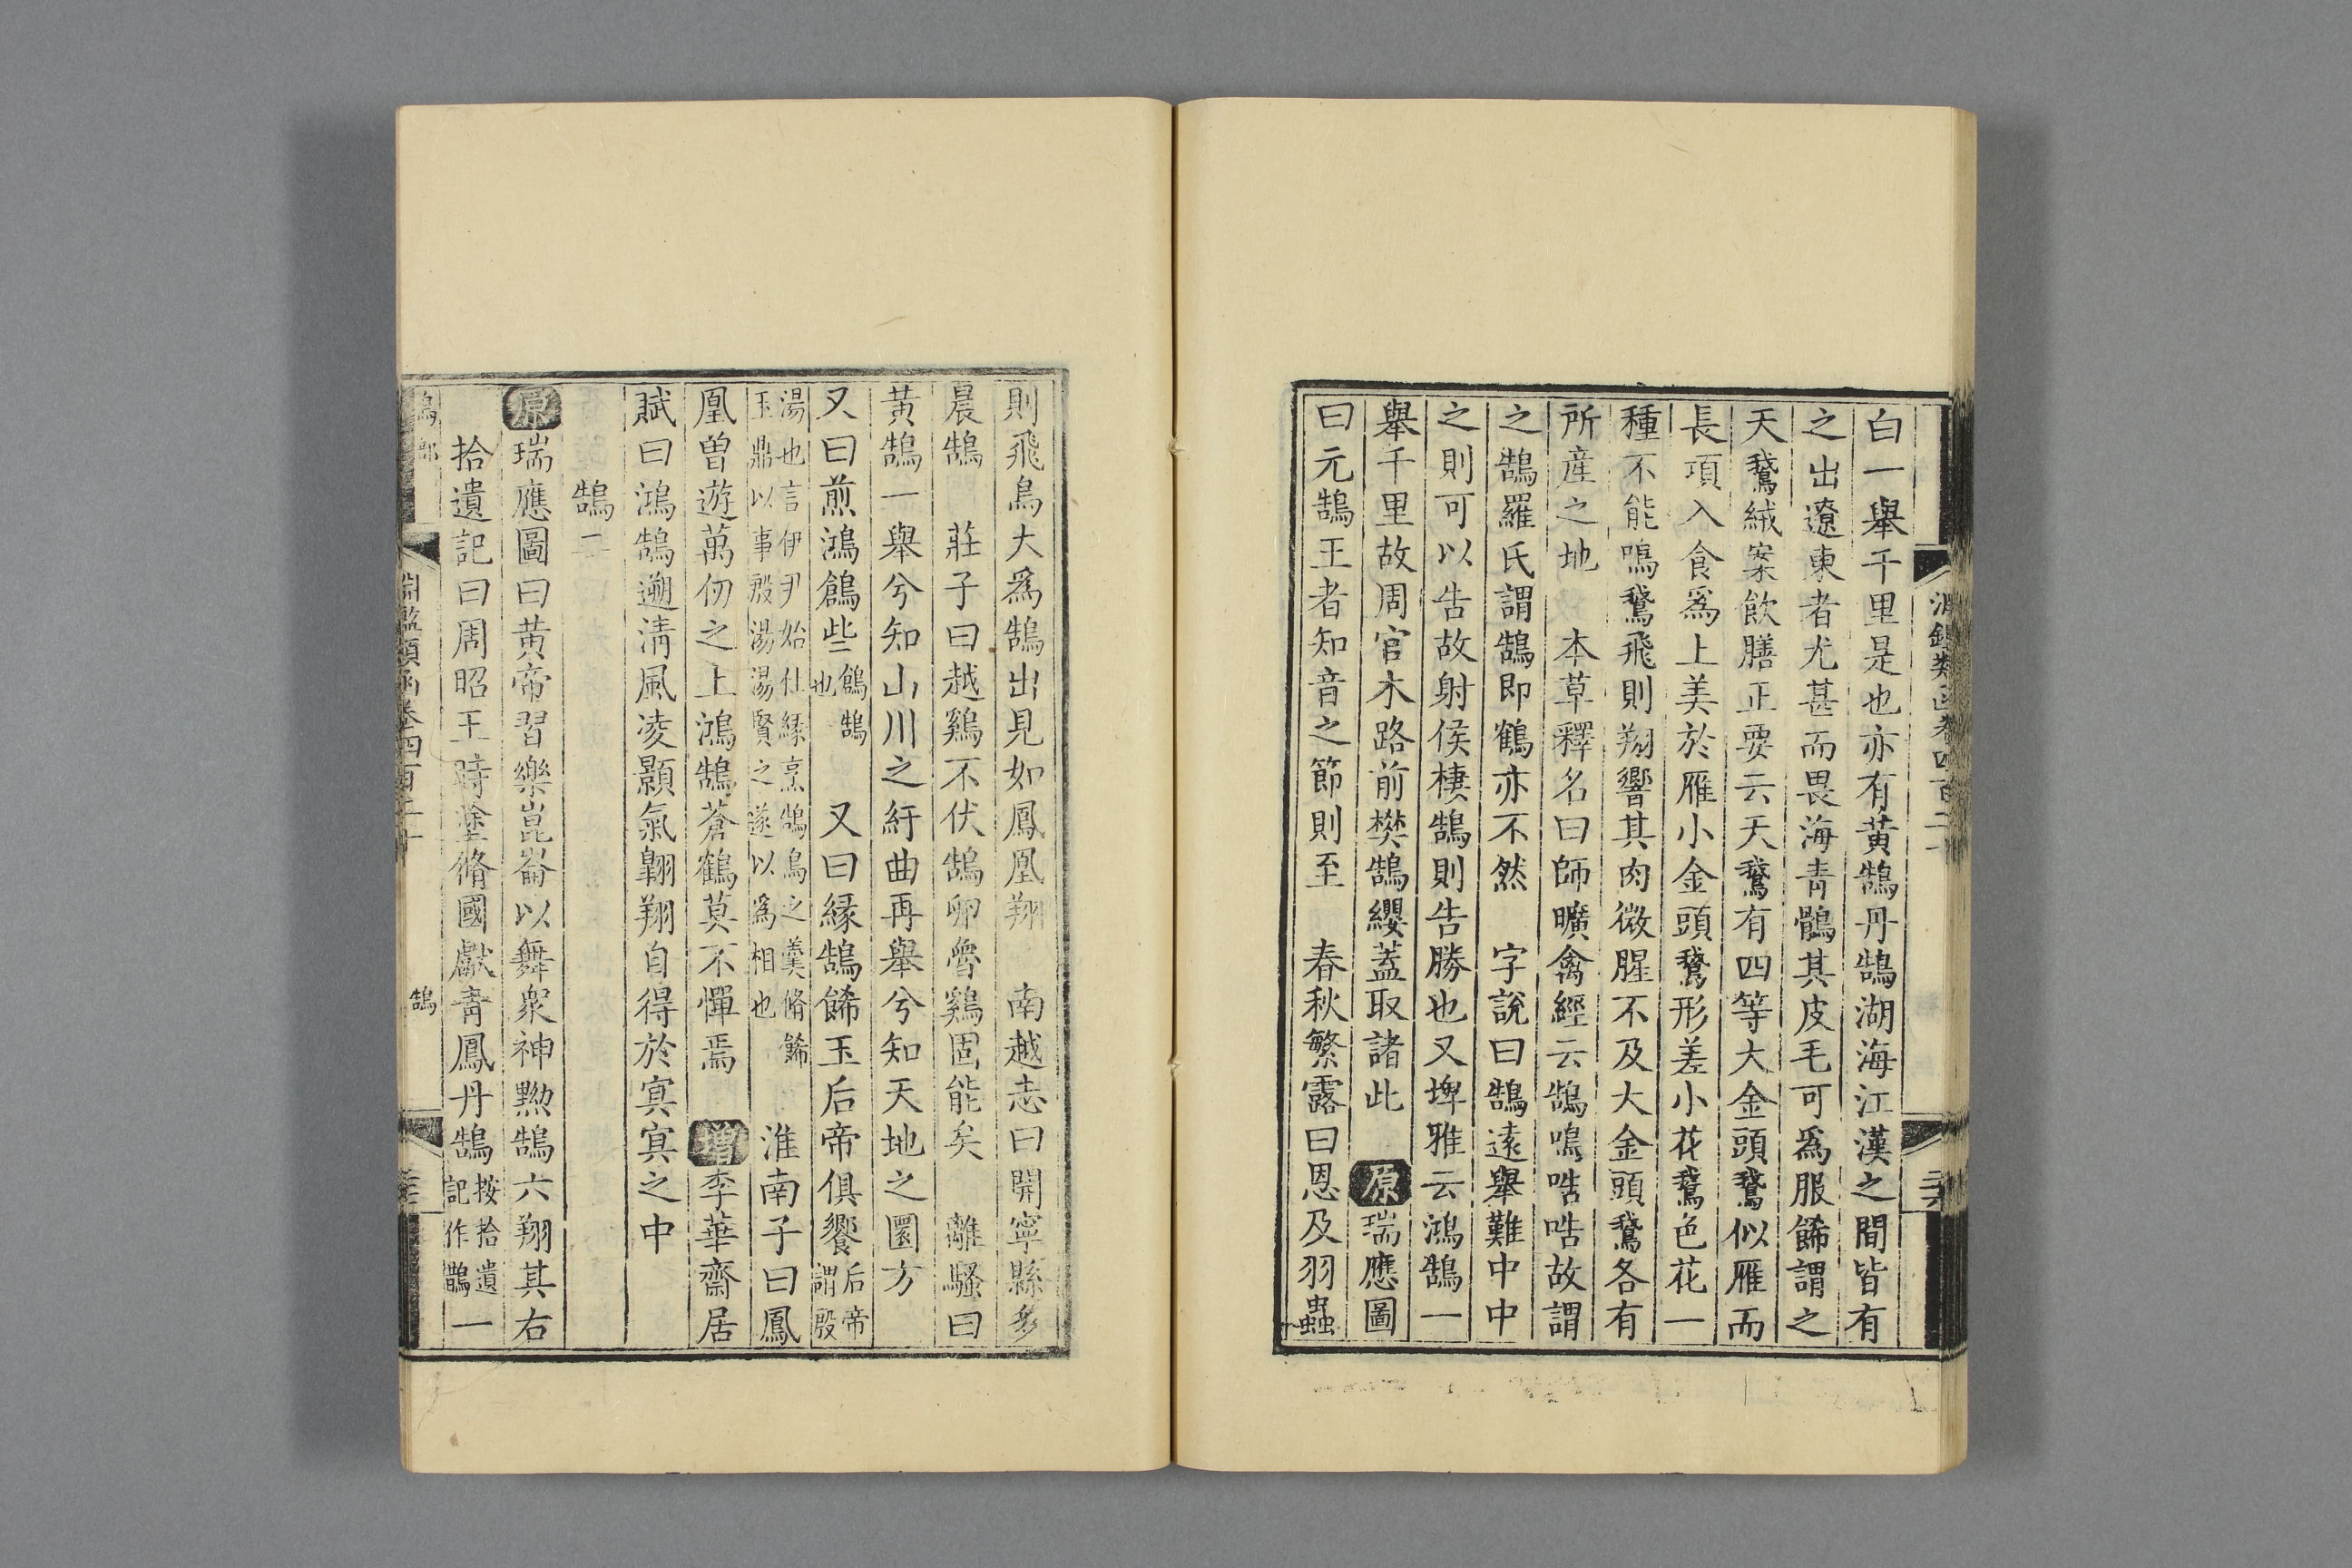 白一舉千里是也亦有黃鵠丹鵠湖海江漢之間皆有
之出遼東者尤甚而畏海青鶻其皮毛可爲服飾謂之
天鵞絨案飲膳正要云天鵞有四等大金頭鵞似雁而
長項入食爲上美於雁小金頭鵞形差小花鵞色花一
種不能鳴鵞飛則翔響其肉微腥不及大金頭鵞各有
所産之地　本草釋名曰師曠禽經云鵠鳴哠哠故謂
之鵠羅氏謂鵠即鶴亦不然　字說曰鵠遠舉難中中
之則可以告故射侯棲鵠則告勝也又埤雅云鴻鵠一
舉千里故周官木路前樊鵠纓蓋取諸此　原瑞應圖
曰元鵠王者知音之節則至　春秋繁露曰恩及羽蟲
則飛鳥大爲鵠出見如鳳凰翔　南越志曰開寧縣多
晨鵠　莊子曰越鷄不伏鵠卵魯鷄固能矣　離騷曰
黃鵠一舉兮知山川之紆曲再舉兮知天地之圜方
又曰煎鴻鶬些鶬鵠也　又曰緣鵠飾玉后帝俱饗后帝謂殷
湯也言伊尹始仕緣烹鵠鳥之羹脩飾玉鼎以事殷湯湯賢之遂以爲相也　淮南子曰鳳
凰曾遊萬仞之上鴻鵠蒼鶴莫不憚焉　增李華齋居
賦曰鴻鵠遡淸風凌顥氣翺翔自得於寞寞之中
鵠二
原瑞應圖曰黃帝習樂崑崙以舞衆神黝鵠六翔其右
拾遺記曰周昭王時塗脩國獻靑鳳丹鵠按拾遺記作鵲一
淵鑑類函卷四百二十
鵠